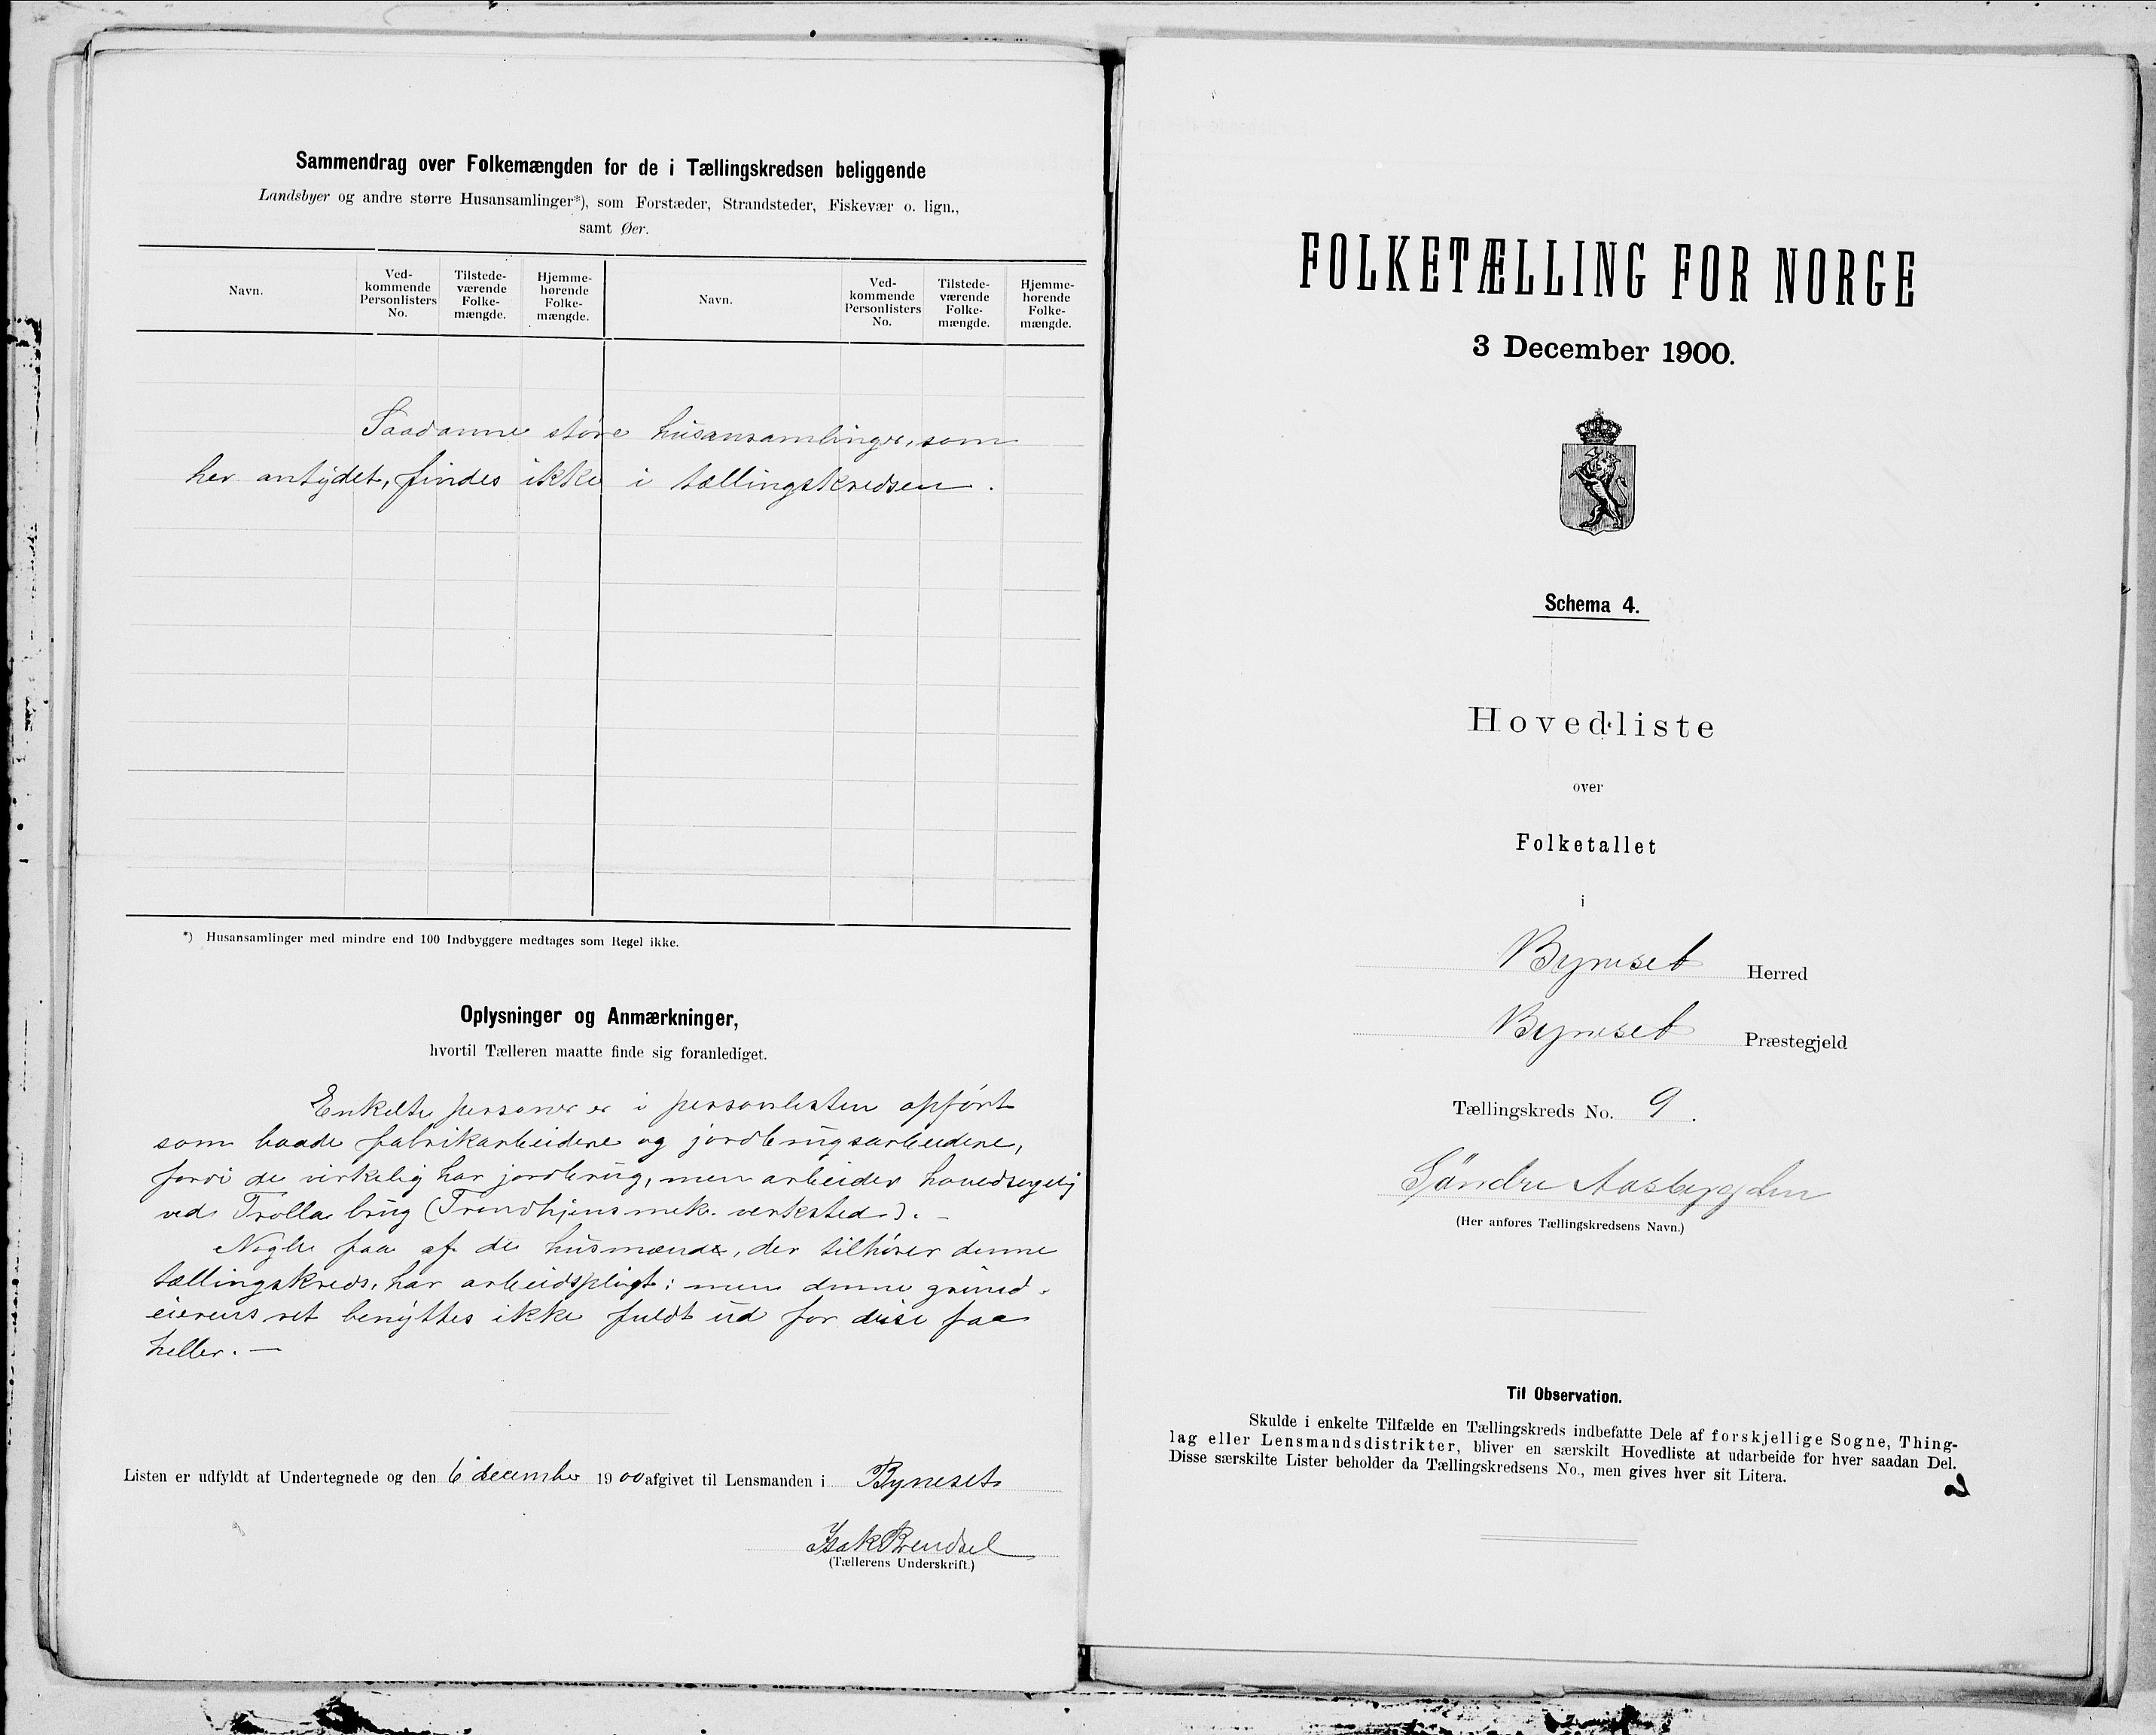 Sammendrag over Folkemængden for de i Tællingskredsen beliggende
Landsbyer og andre større Husansamlinger*), som Forstæder, Strandsteder, Fiskevær o. lign.,
samt Øer.
Navn.
Ved-
kommende
Personlisters
No.
Tilstede-
værende
Folke-
mængde.
Hjemme-
hørende
Folke-
mængde.
Navn.
Ved-
kommende
Personlisters
No.
Tilstede-
værende
Folke-
mængde.
Hjemme-
hørende
Folke-
mængde.
Saadanne støre husansamlinger, som
her antydet, findes ikke i tællingskredsen.
*) Husansamlinger med mindre end 100 Indbyggere medtages som Regel ikke.
Oplysninger og Anmærkninger,
hvortil Tælleren maatte finde sig foranlediget.
Enkelte personer er i personlisten opført
som baade fabrikarbeidere og jordbrugsarbeidere,
fordi de virkelig har jordbrug, men arbeider hovedsagelig
ved Trolla brug (Trondhjems mek. verksted). —
Nogle faa af de husmænd, der tilhører denne
tællingskreds, har arbeidspligt; men denne grund-
eierens ret benyttes ikke fuldt ud for disse faa
heller. —
Listen er udfyldt af Undertegnede og den 6 december 1900 afgivet til Lensmanden i Byneset
Isak Brendsel
(Tællerens Underskrift.)
FOLKETÆLLING FOR NORGE
3 December 1900.
Schema 4.
Hovedliste
over
Folketallet
i
Byneset Herred
Byneset Præstegjeld
Tællingskreds No. 9.
Söndre Aasbygden
(Her anføres Tællingskredsens Navn.)
Til Observation.
Skulde i enkelte Tilfælde en Tællingskreds indbefatte Dele af forskjellige Sogne, Thing-
lag eller Lensmandsdistrikter, bliver en særskilt Hovedliste at udarbeide for hver saadan Del.
Disse særskilte Lister beholder da Tællingskredsens No., men gives hver sit Litera.